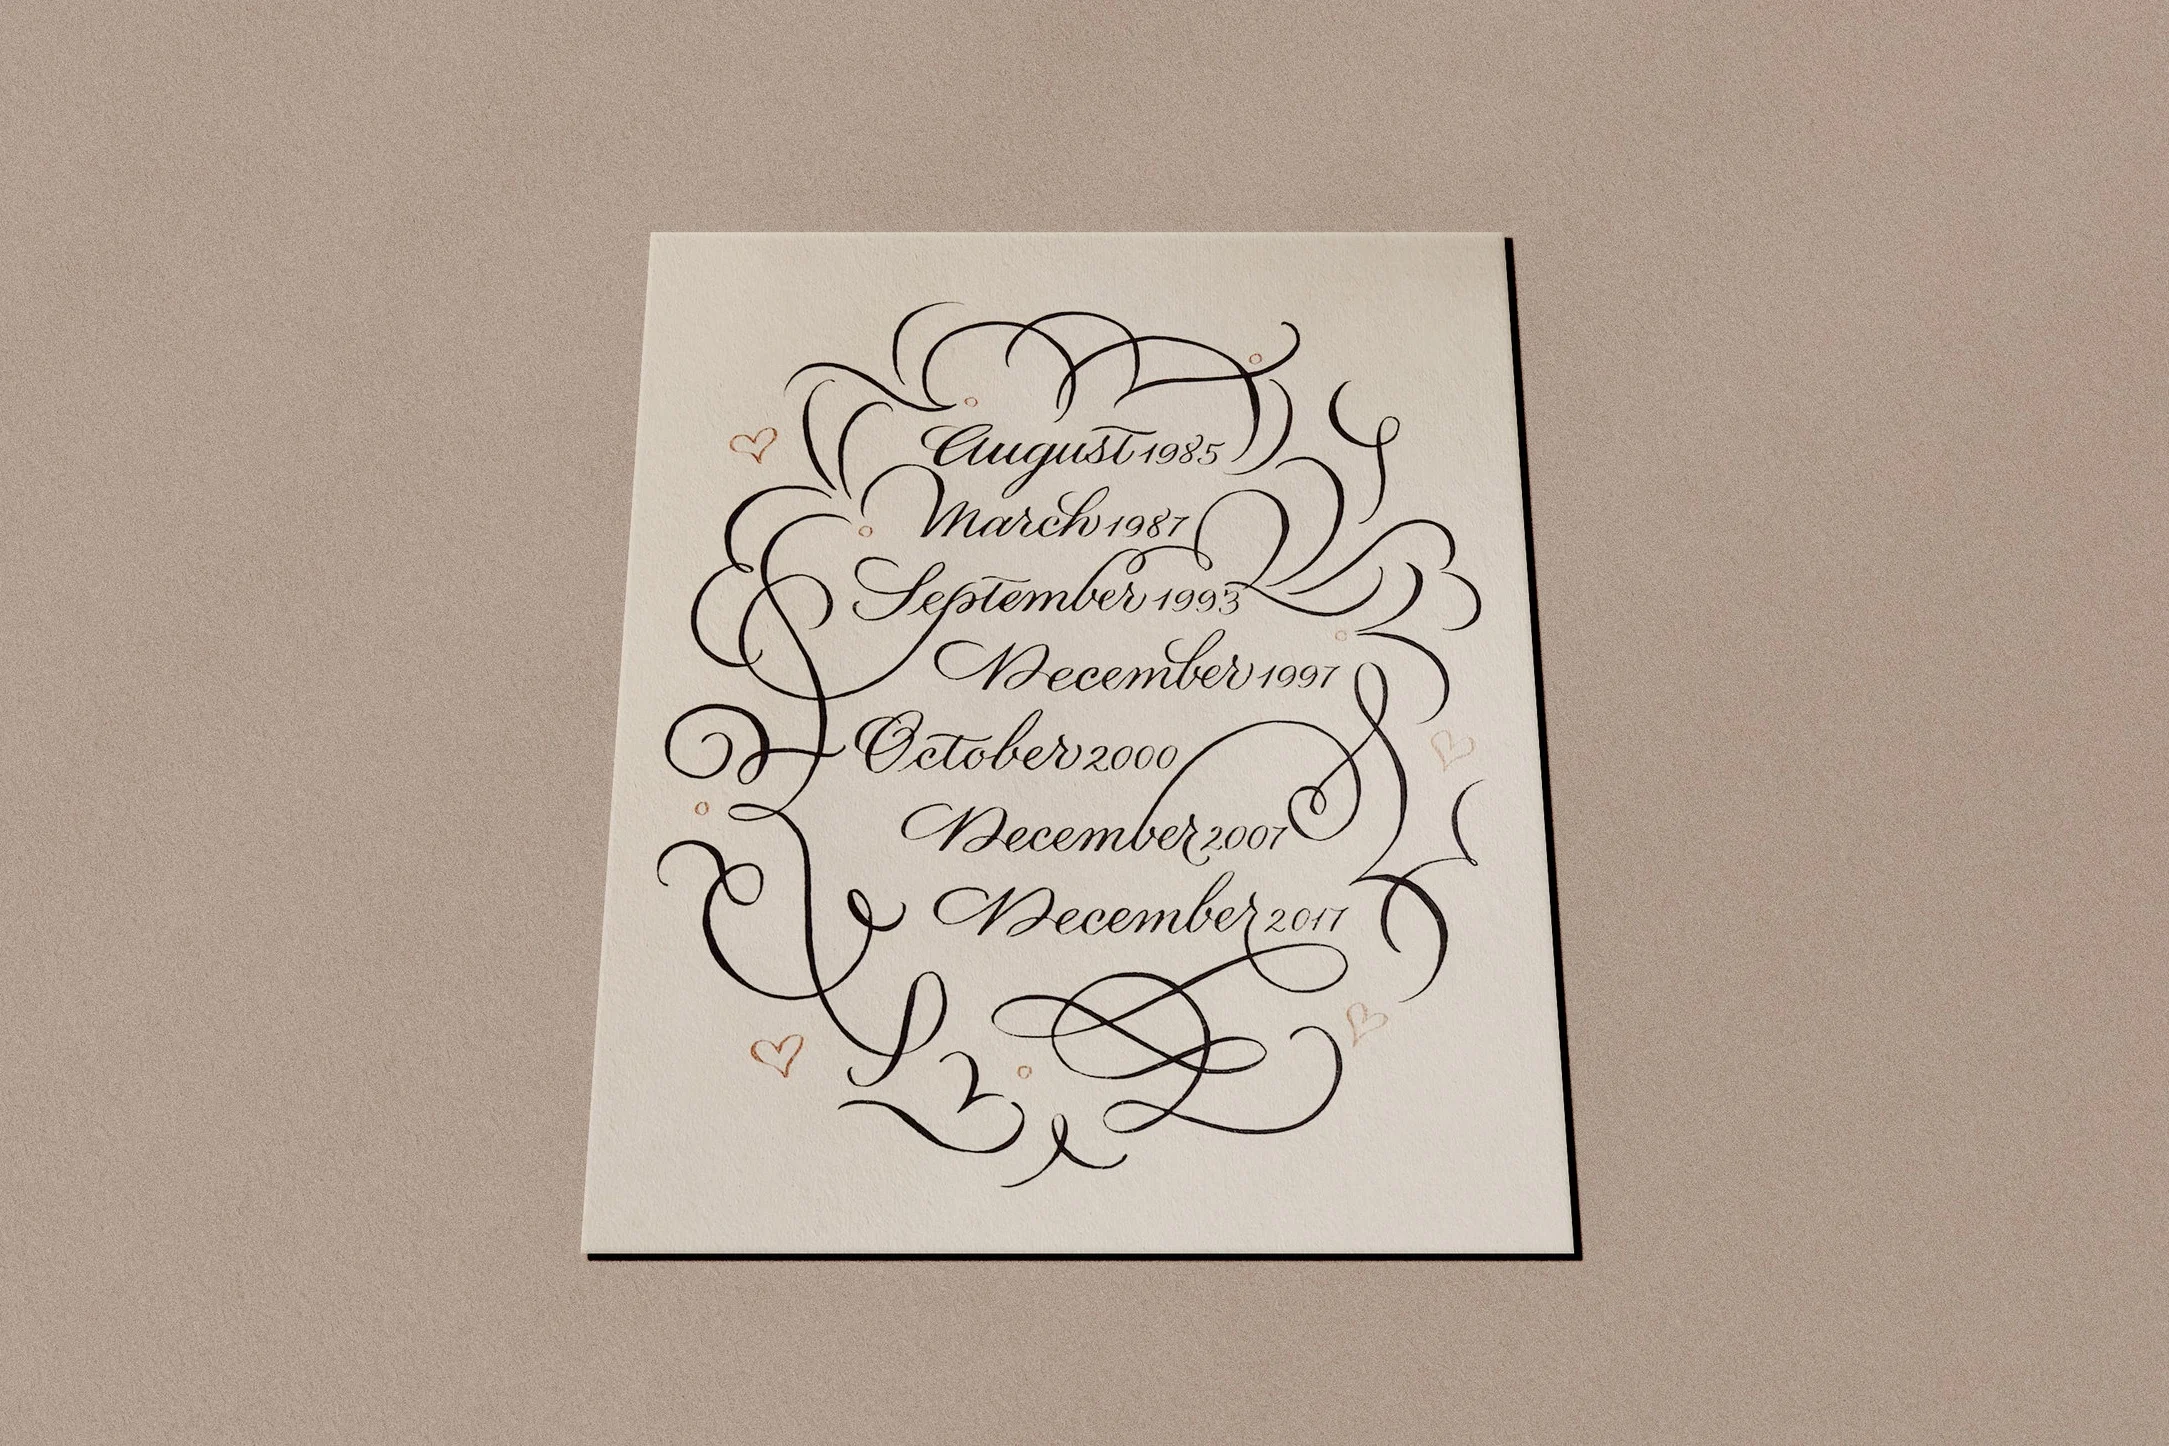 August 1985
March 1987
September 1993
December 1997
October 2000
December 2007
December 2017